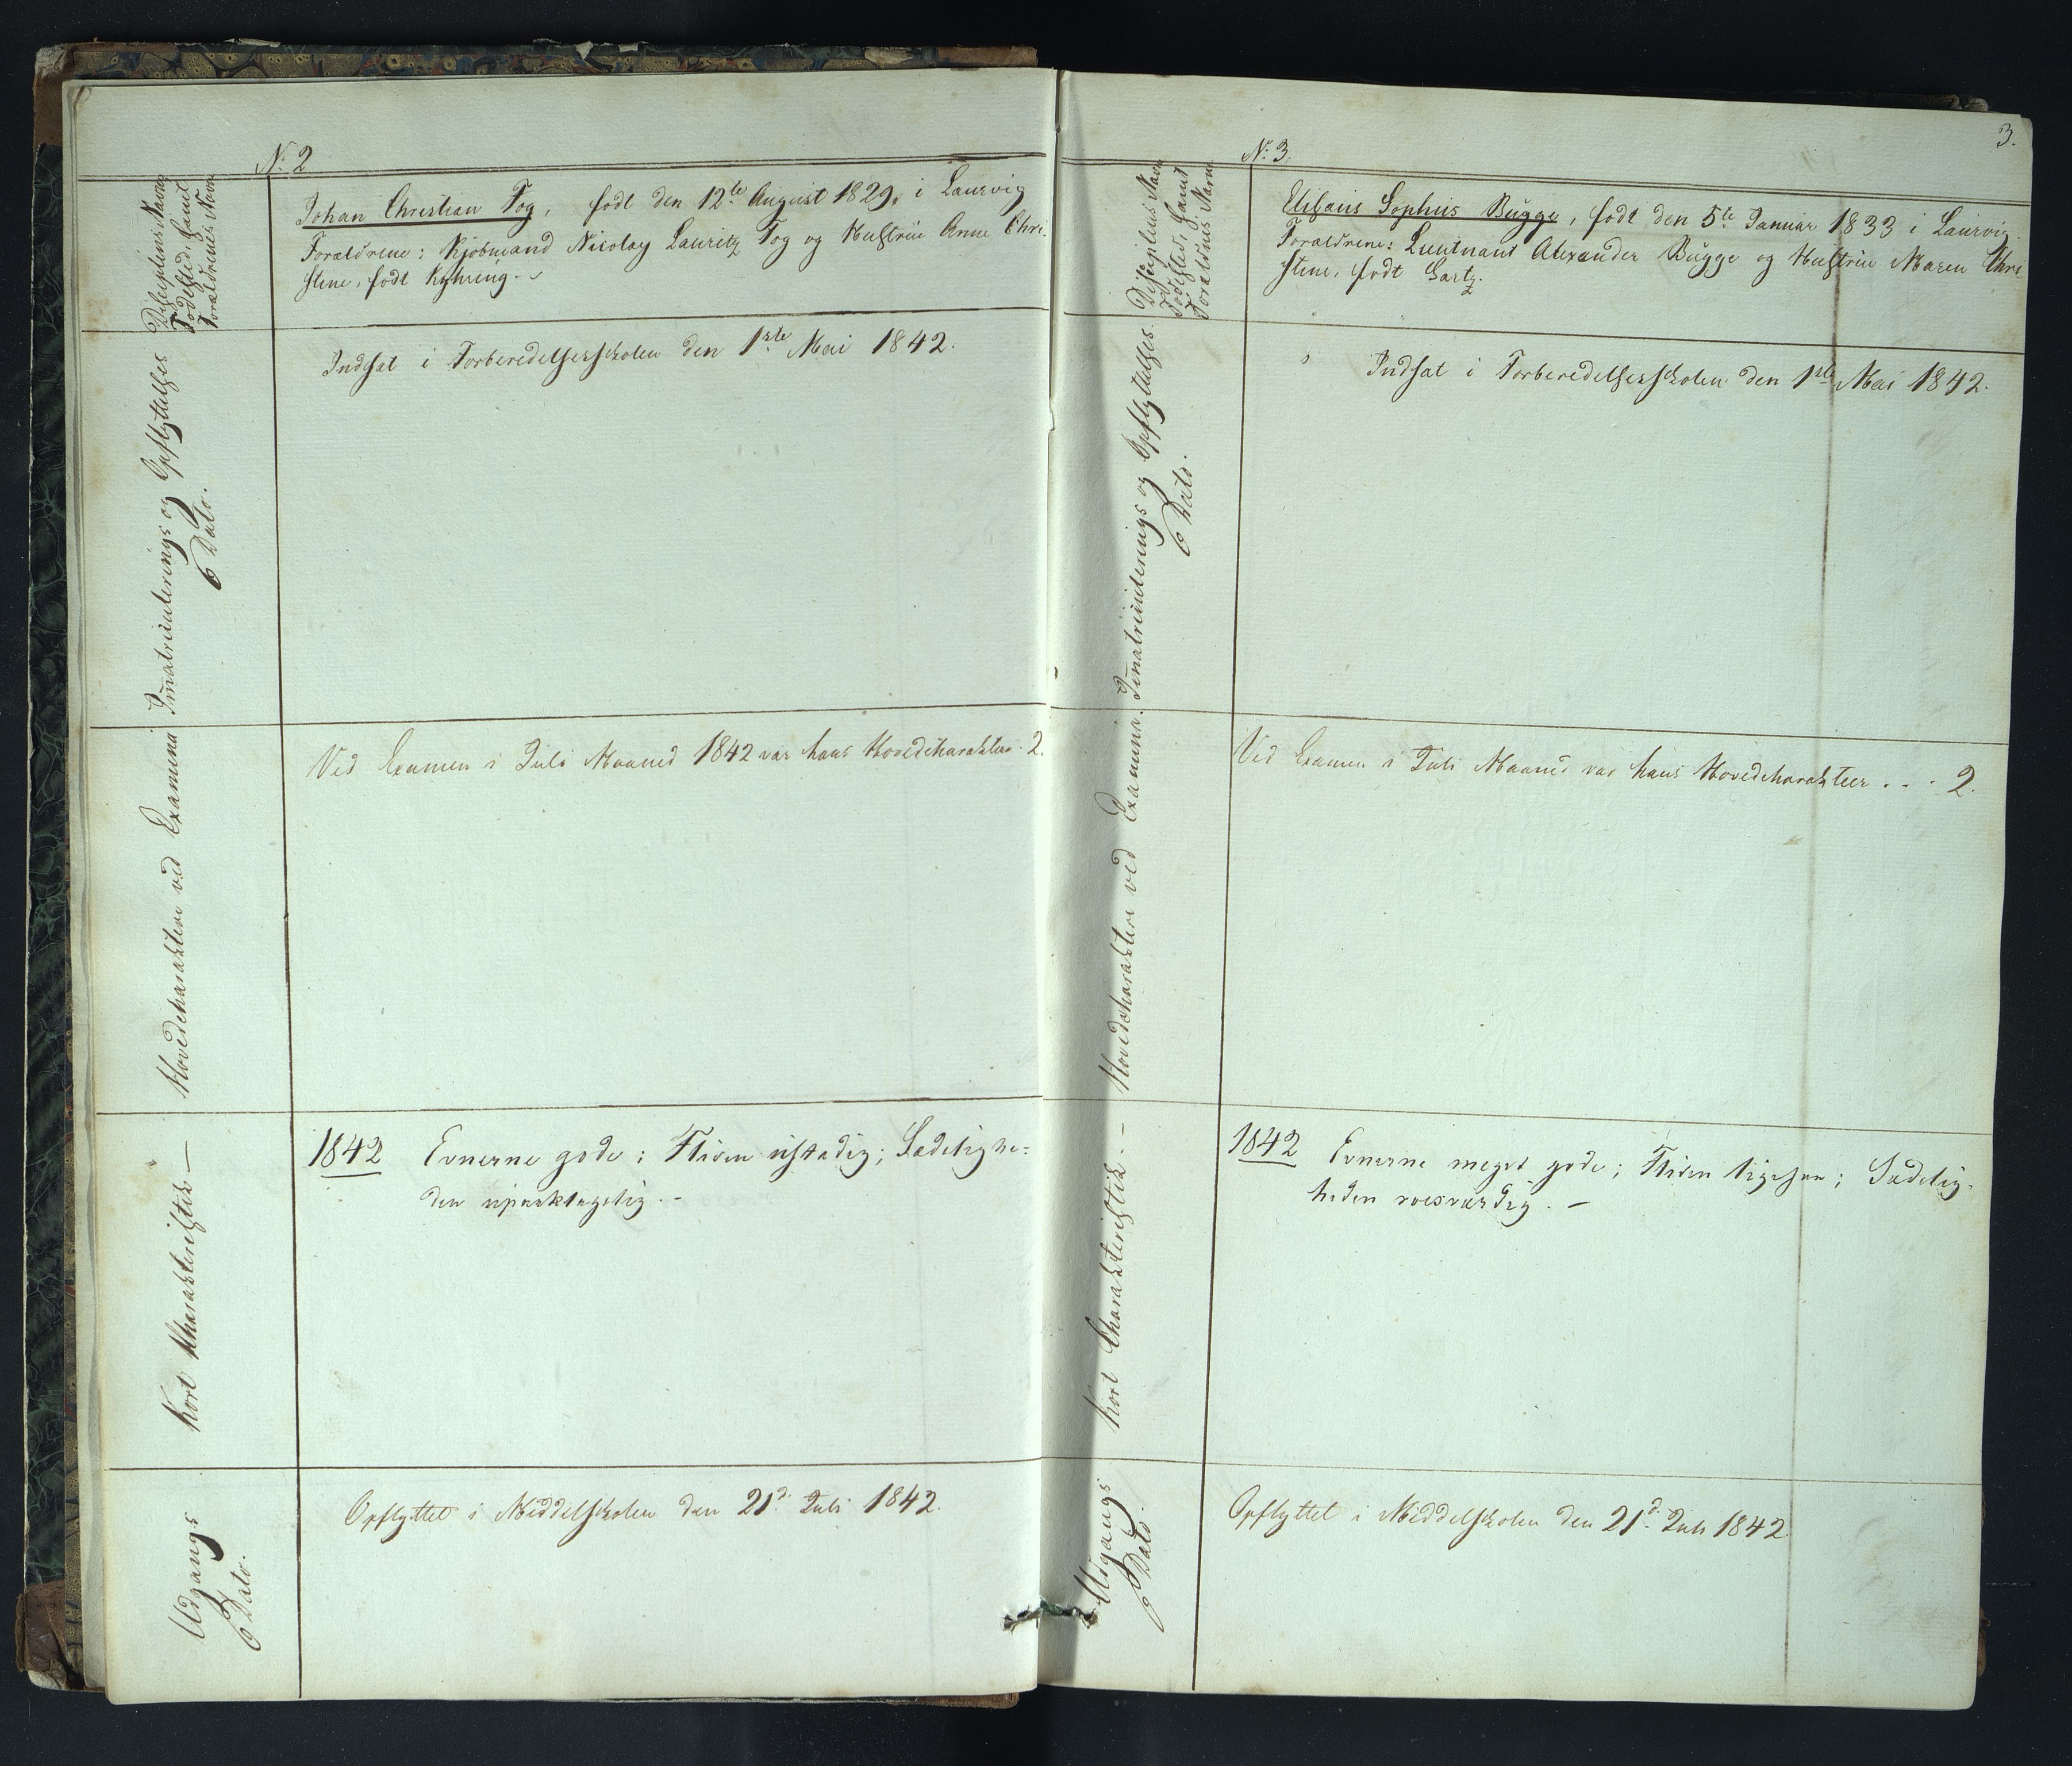 No. 2
Disciplens Navn,
Fødested, samt
Forældrenes Navn
Johan Christian Fog, født den 12te August 1829, i Laurvig
Forældrene: Kjøbmand Nicolay Lauritz Fog og Hustrue Anne Chri-
stine, født Kyhring.
Immatriculerings og Opflyttelses
Dato.
Indsat i Forberedelsesskolen den 1ste Mai 1842.
Hovedcharakter ved Examina
Ved Examen i Juli Maaned 1842 var hans Hovedcharakter. 2.
Kort Charakteristik —
1842 Evnerne gode; Fliden ustadig; Sædelighe-
den upaaklagelig. -
Udgangs
Dato.
Opflyttet i Middelskolen den 21d. Juli 1842.
3.
No. 3.
Disciplens Navn,
Fødested, samt
Forældrenes Navne
Elisæus Sophus Bugge, født den 5te Januar 1833 i Laurvig.
Forældrene: Lieutnant Alexander Bugge og Hustrue Maren Chri
stine, født Gartz.
Immatriculerings og Opflyttelses.
Dato.
Indsat i Forberedelsesskolen den 1ste Mai 1842.
Hovedcharaktere ved Examina.
Ved Examen i Juli Maaned var hans Hovedcharakteer . . . 2.
Kort Charakteristik. —
1842 Evnerne meget gode; Fliden ligesaa; Sædelig-
heden roesværdig. —
Udgangs
Dato.
Opflyttet i Middelskolen den 21d. Juli 1842.